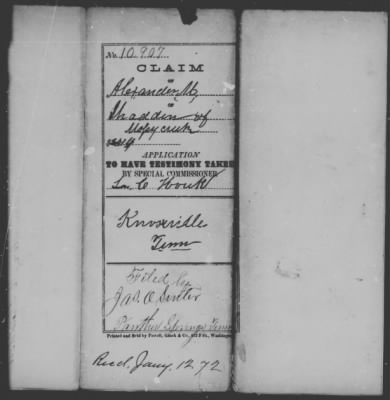 No. 10.907
CLAIM
OF
Alexander M,
Shaddin of
Mossy creek
APPLICATION
TO HAVE TESTIMONY TAKEN
BY SPECIAL COMMISSIONER
L. C Houk
Knoxville
Tenn
Filed by
Jas. O. Senter
Panther Springs Tenn
Printed and Sold by Powell, Ginck & Co., 632 F st., Washington
Recd. Jany. 12 72